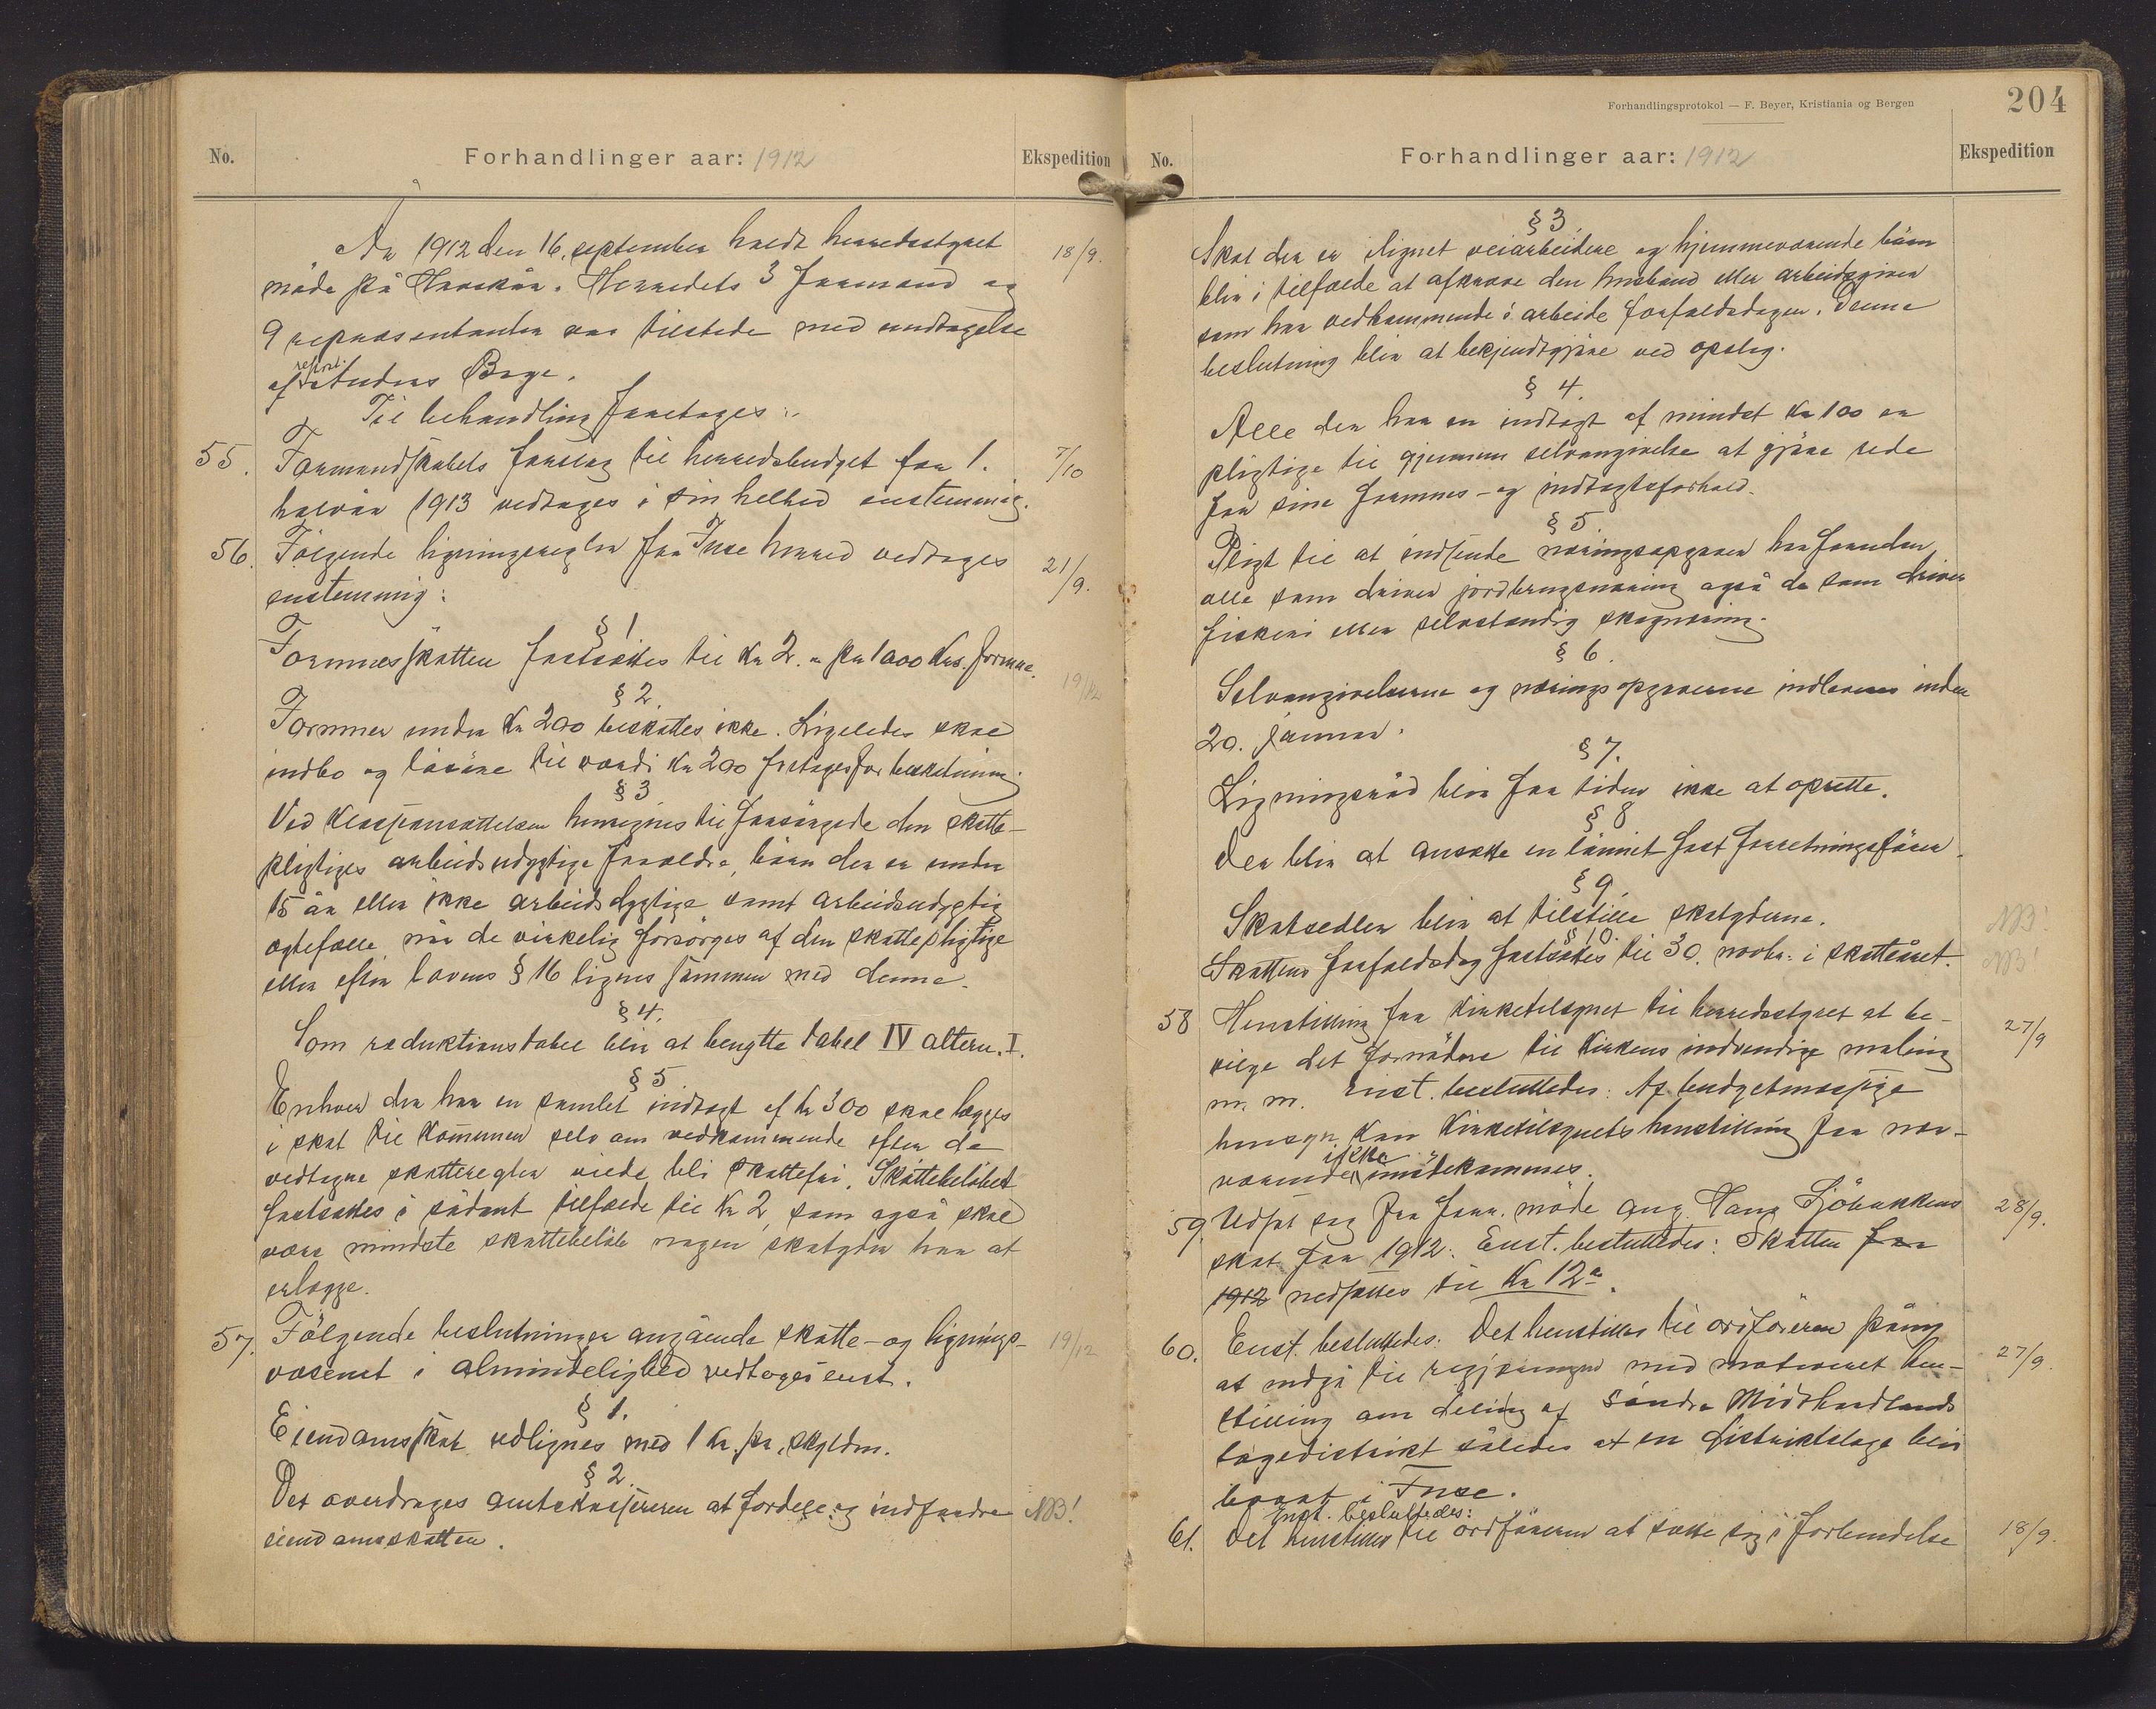 No.
Forhandlinger aar: 1912
Ekspedition
År 1912 den 16. september holdt herredsstyret 18/9.
møde på Havskår. Herredets 3 formænd og
9 repræsentanter var tilstede med undtagelse
af repr. Anders Berge.
Til behandling foretoges:
55. Formandskabets forslag til herredsbudget for 1. 7/10
halvår 1913 vedtages i sin helhed enstemmig.
56. Følgende ligningsregler for Fuse herred vedtages 21/9.
enstemmig:
§ 1
Formuesskatten fastsættes til Kr 2.- pr 1000 Krs. formue.
§ 2. 19/12
Formuer under Kr 200 beskattes ikke. Ligeledes skal
indbo og løsøre til værdi Kr 200 fritages for beskatning.
§ 3
Ved klasseansættelsen henregnes til forsørgede den skatte-
pligtiges arbeidsudygtige forældre, børn der er under
15 år eller ikke arbeidsdygtige samt arbeidsudygtig
ægtefælle når de virkelig forsørges af den skattepligtige
eller efter lovens § 16 lignes sammen med denne.
§ 4.
Som reduktionstabel blir at benytte tabel IV altern. I.
§ 5
Enhver der har en samlet indtægt af kr 300 skal lægges
i skat til kommunen selv om vedkommende efter de
vedtagne skatteregler vilde bli skattefri. Skattebeløbet
fastsættes i sådant tilfælde til Kr 2, som også skal
være mindste skattebeløb nogen skatyder har at
erlægge.
57. Følgende beslutninger angående skatte- og lignings- 19/12
væsenet i almindelighed vedtoges enst.
§ 1.
Eiendomsskat udlignes med 1 kr. pr. skyldm.
§ 2.
Det overdrages amtskassereren at fordele og indfordre NB!
eiendomsskatten.
Forhandlingsprotokol — F. Beyer, Kristiania og Bergen
204
No.
Forhandlinger aar: 1912
Ekspedition
§ 3
Skat der er ilignet veiarbeidere og hjemmeværende børn
blir i tilfælde at afkræve den husbond eller arbeidsgiver
som har vedkommende i arbeide forfaldsdagen. Denne
beslutning blir at bekjendtgjøre ved opslag.
§ 4.
Alle der har en indtægt af mindst Kr 100 er
pligtige til gjennem selvangivelse at gjøre rede
for sine formues- og indtægtsforhold.
§ 5.
Pligt til at indsende næringsopgaver har foruden
alle som driver jordbrugsnæring også de som driver
fiskeri eller selvstændig skognæring.
§ 6.
Selvangivelserne og næringsopgaverne indleveres inden
20. januar.
§ 7.
Ligningsråd blir for tiden ikke at oprette.
§ 8
Der blir at ansætte en lønnet fast forretningsfører.
§ 9.
Skatsedler blir at tilstille skatyderne. NB!
§ 10.
Skattens forfaldsdag fastsættes til 30. novbr. i skatteåret. NB!
58 Henstilling fra kirketilsynet til herredsstyret at be- 27/9
vilge det fornødne til kirkens indvendige maling
m. m. Enst. besluttedes: Af budgetmæssige
hensyn kan kirketilsynets henstilling for nær-
værende ikke imødekommes.
59. Udsat sag fra forr. møde ang. Hans Sjöbakkens 28/9.
skat for 1912. Enst. besluttedes: Skatten for
1912 nedsættes til Kr 12.-
60. Enst. besluttedes: Det henstilles til ordføreren påny 27/9.
at indgå til regjeringen med motiveret hen-
stilling om deling af Søndre Midthordlands
lægedistrikt således at en distriktslæge blir
bosat i Fuse.
Enst. besluttedes:
61. Det henstilles til ordføreren at sætte sig i forbindelse 18/9.